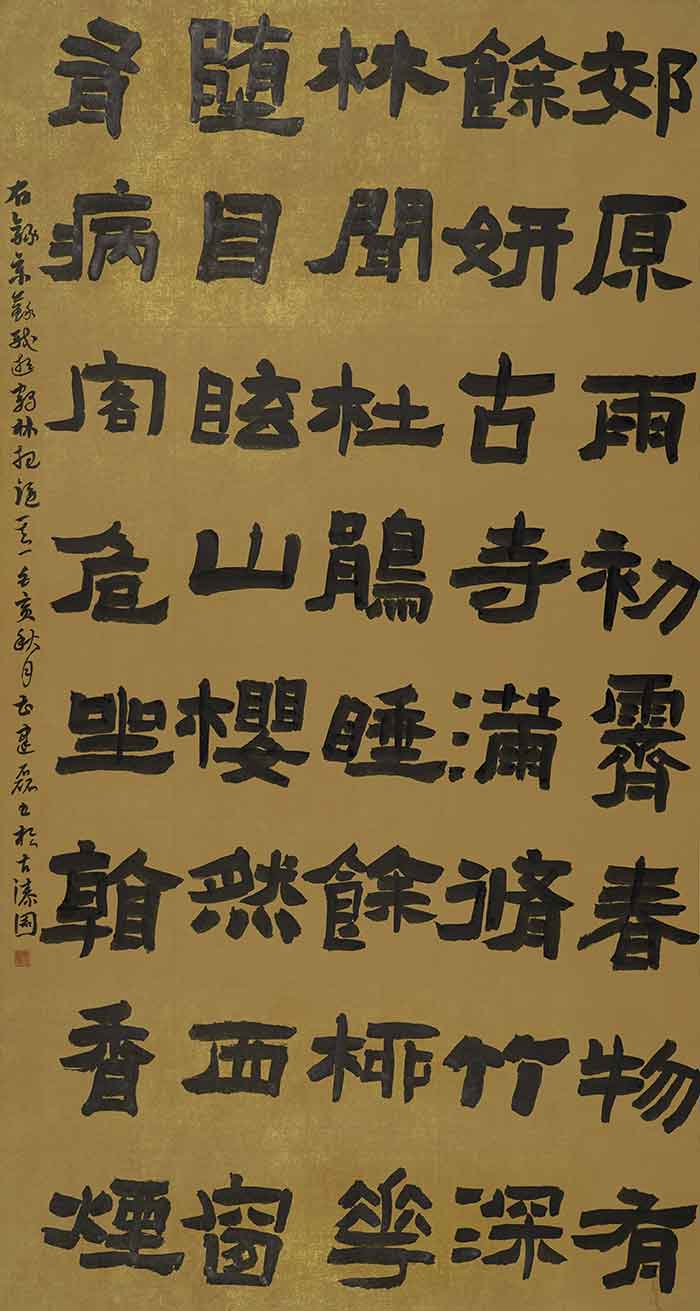 郊原雨初霽春物有
餘妍古寺滿脩竹深
林聞杜鵑睡餘桺華
墮目眩山櫻然西窗
有病客危坐看香煙
右錄宋蘇軾遊鶴林招隱其一己亥秋月建磊書於古漆園